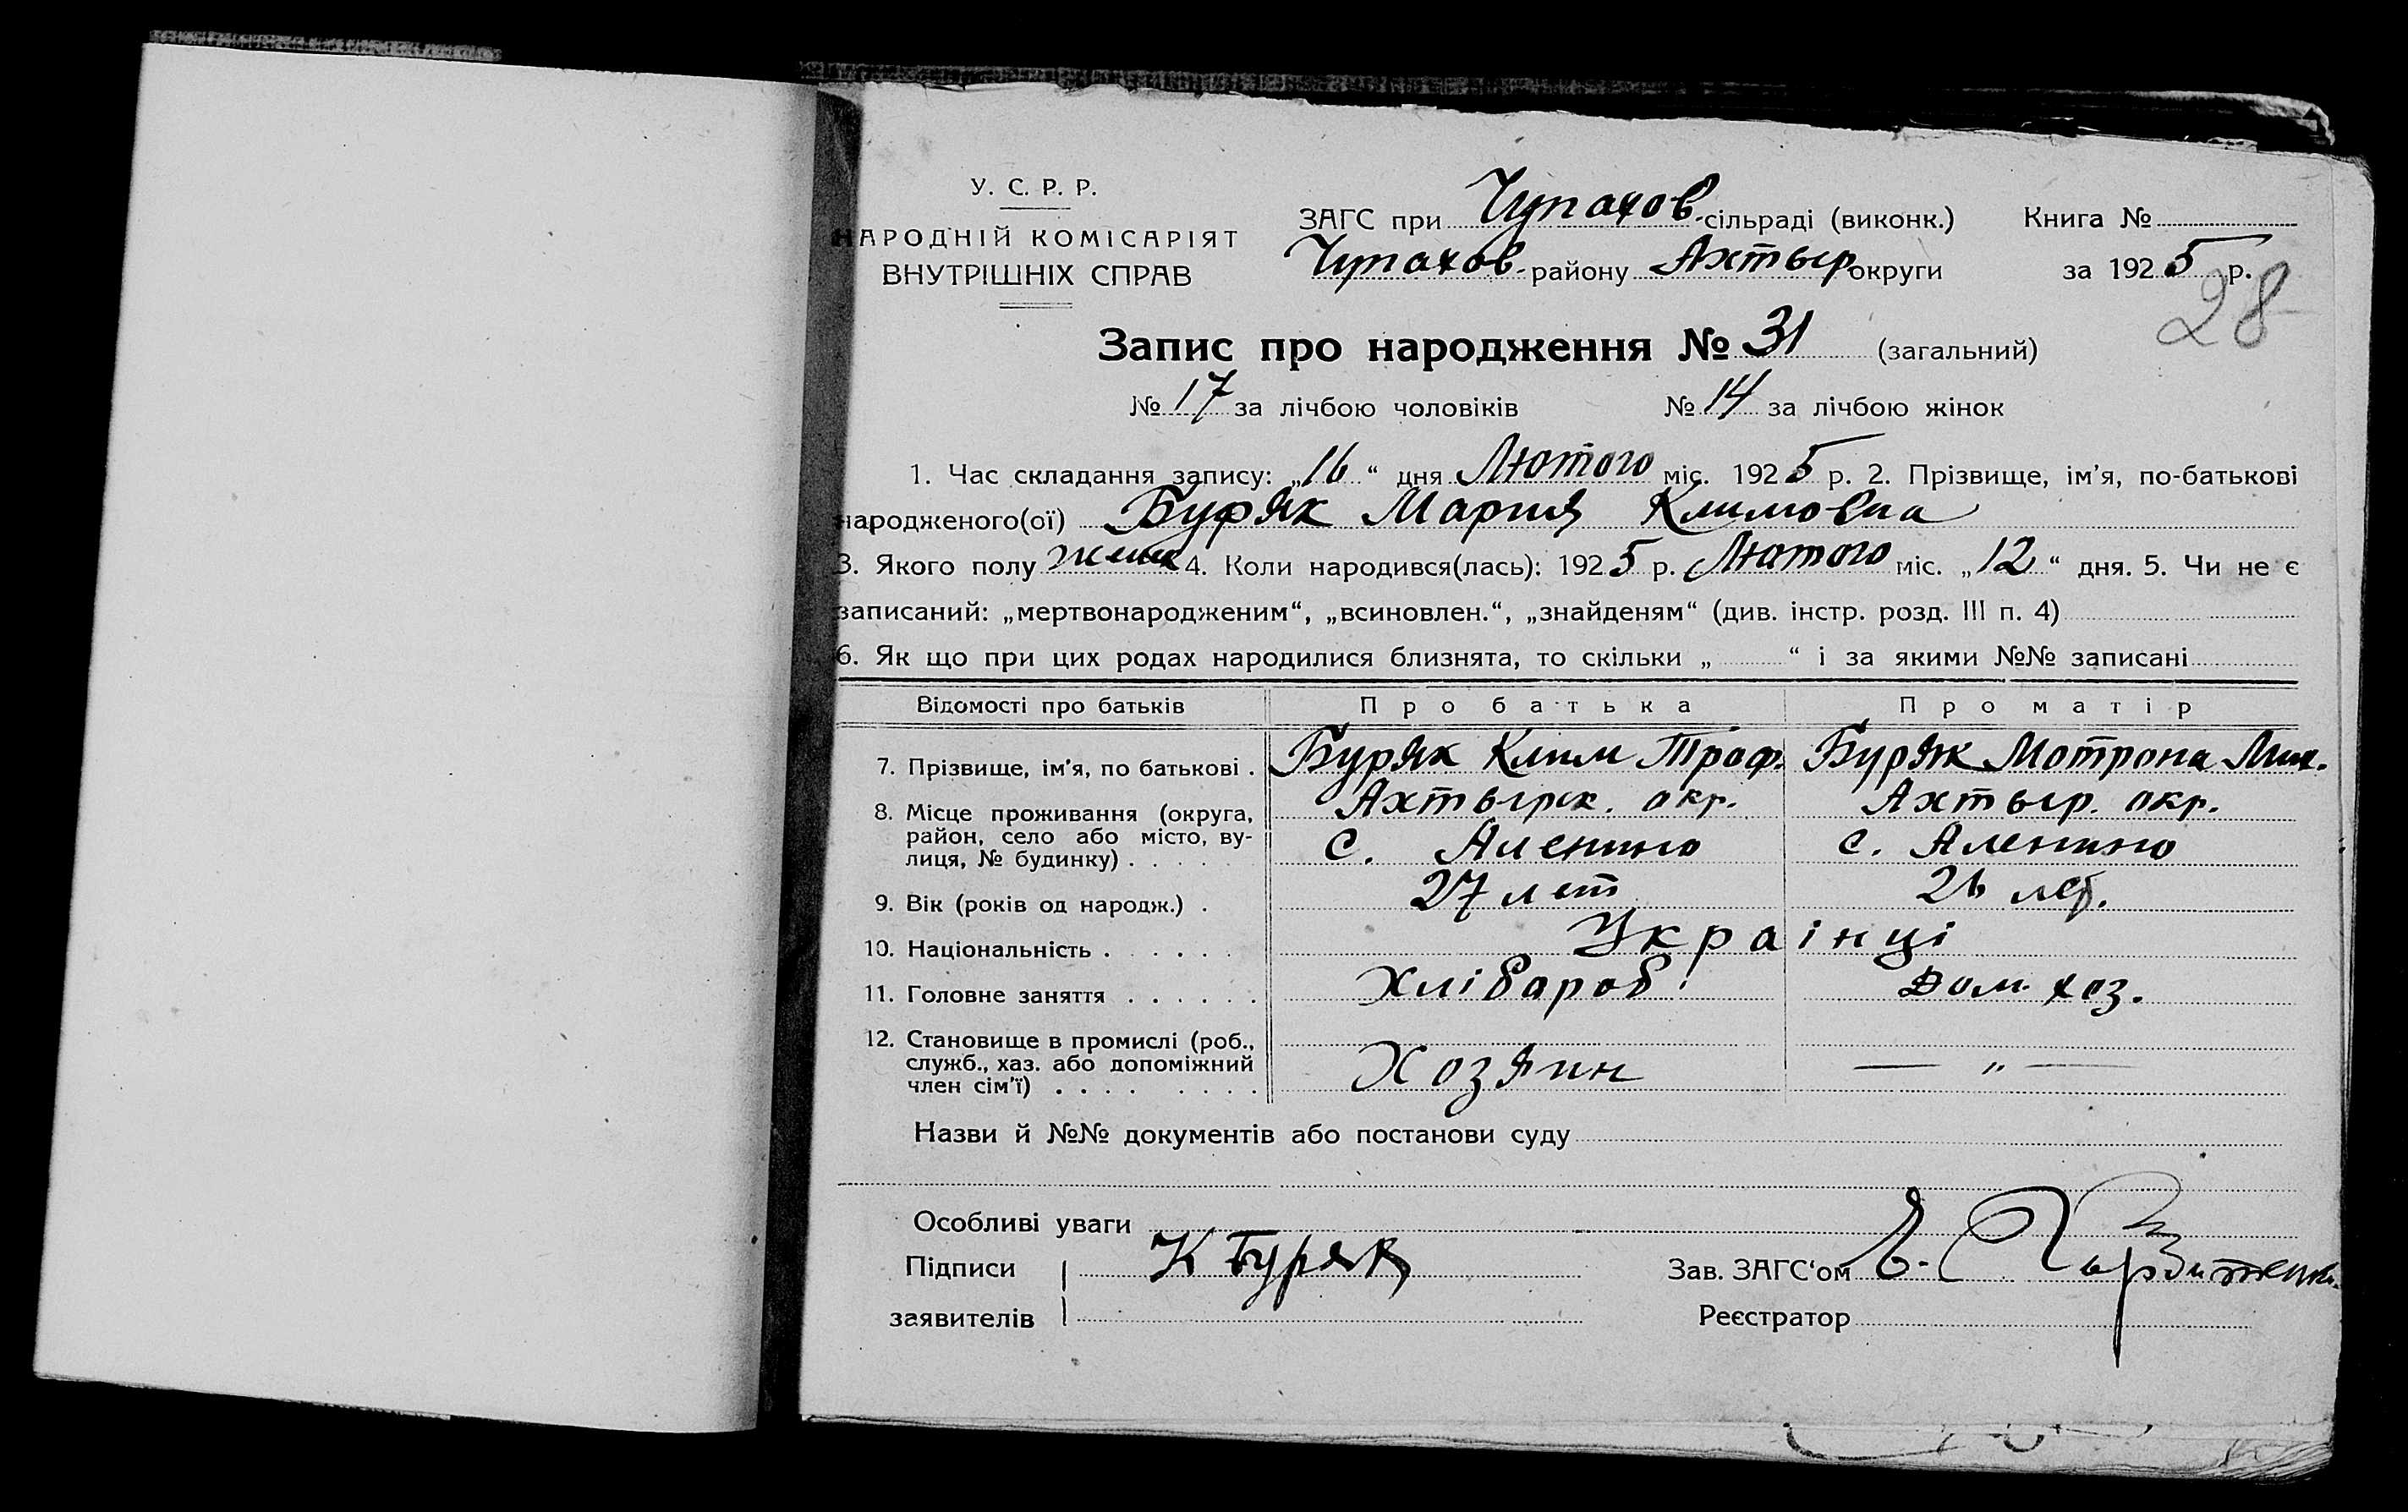 У. С. Р. Р.
НАРОДНІЙ КОМІСАРІЯТ
ВНУТРІШНІХ СПРАВ
ЗАГС при Чупахов. сільраді (виконк.) Книга №
Чупахов. району Ахтыр округи за 1925 р.
28
Запис про народження № 31 (загальний)
№ 17 за лічбою чоловіків № 14 за лічбою жінок
1. Час складання запису: „16“ дня Лютого міс. 1925 р. 2. Прізвище, ім’я, по-батькові
народженого(ої) Буряк Мария Климовна
3. Якого полу женск 4. Коли народився(лась): 1925 р. Лютого міс. „12“ дня. 5. Чи не є
записаний: „мертвонародженим“, „всиновлен.“, „знайденям“ (див. інстр. розд. III п. 4)
6. Як що при цих родах народилися близнята, то скільки „ “ і за якими №№ записані
Відомості про батьків Про батька Про матір
7. Прізвище, ім’я, по батькові . Буряк Клим Троф. Буряк Мотрона Мих.
8. Місце проживання (округа, Ахтырск. окр. Ахтыр. окр.
район, село або місто, ву-
лиця, № будинку) . . . . . с. Аленино с. Аленино
9. Вік (років од народж.) . 27 лет 26 лет.
10. Національність . . . . . . Украінці
11. Головне заняття . . . . . . Хлібароб. Дом. хоз.
12. Становище в промислі (роб.,
служб., хаз. або допоміжний Хозяин — „ —
член сім’ї) . . . . . . . .
Назви й №№ документів або постанови суду
Особливі уваги
Підписи К Буряк Зав. ЗАГС‘ом
заявителів Реєстратор